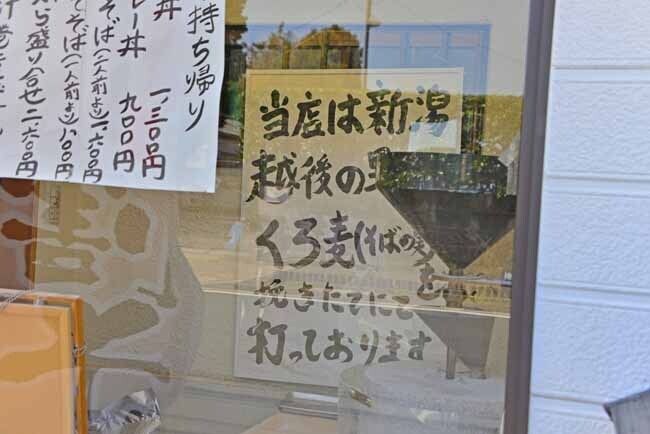 持ち帰り
丼 一、三〇円
レー丼 九〇〇円
そば(二人前より)一、六〇〇円
てそば(一人前より)八〇〇円
ら盛り合せ二、六〇〇円
当店は新潟
越後の黒
くろ麦(そばの実)を
挽きたてにて
打っております